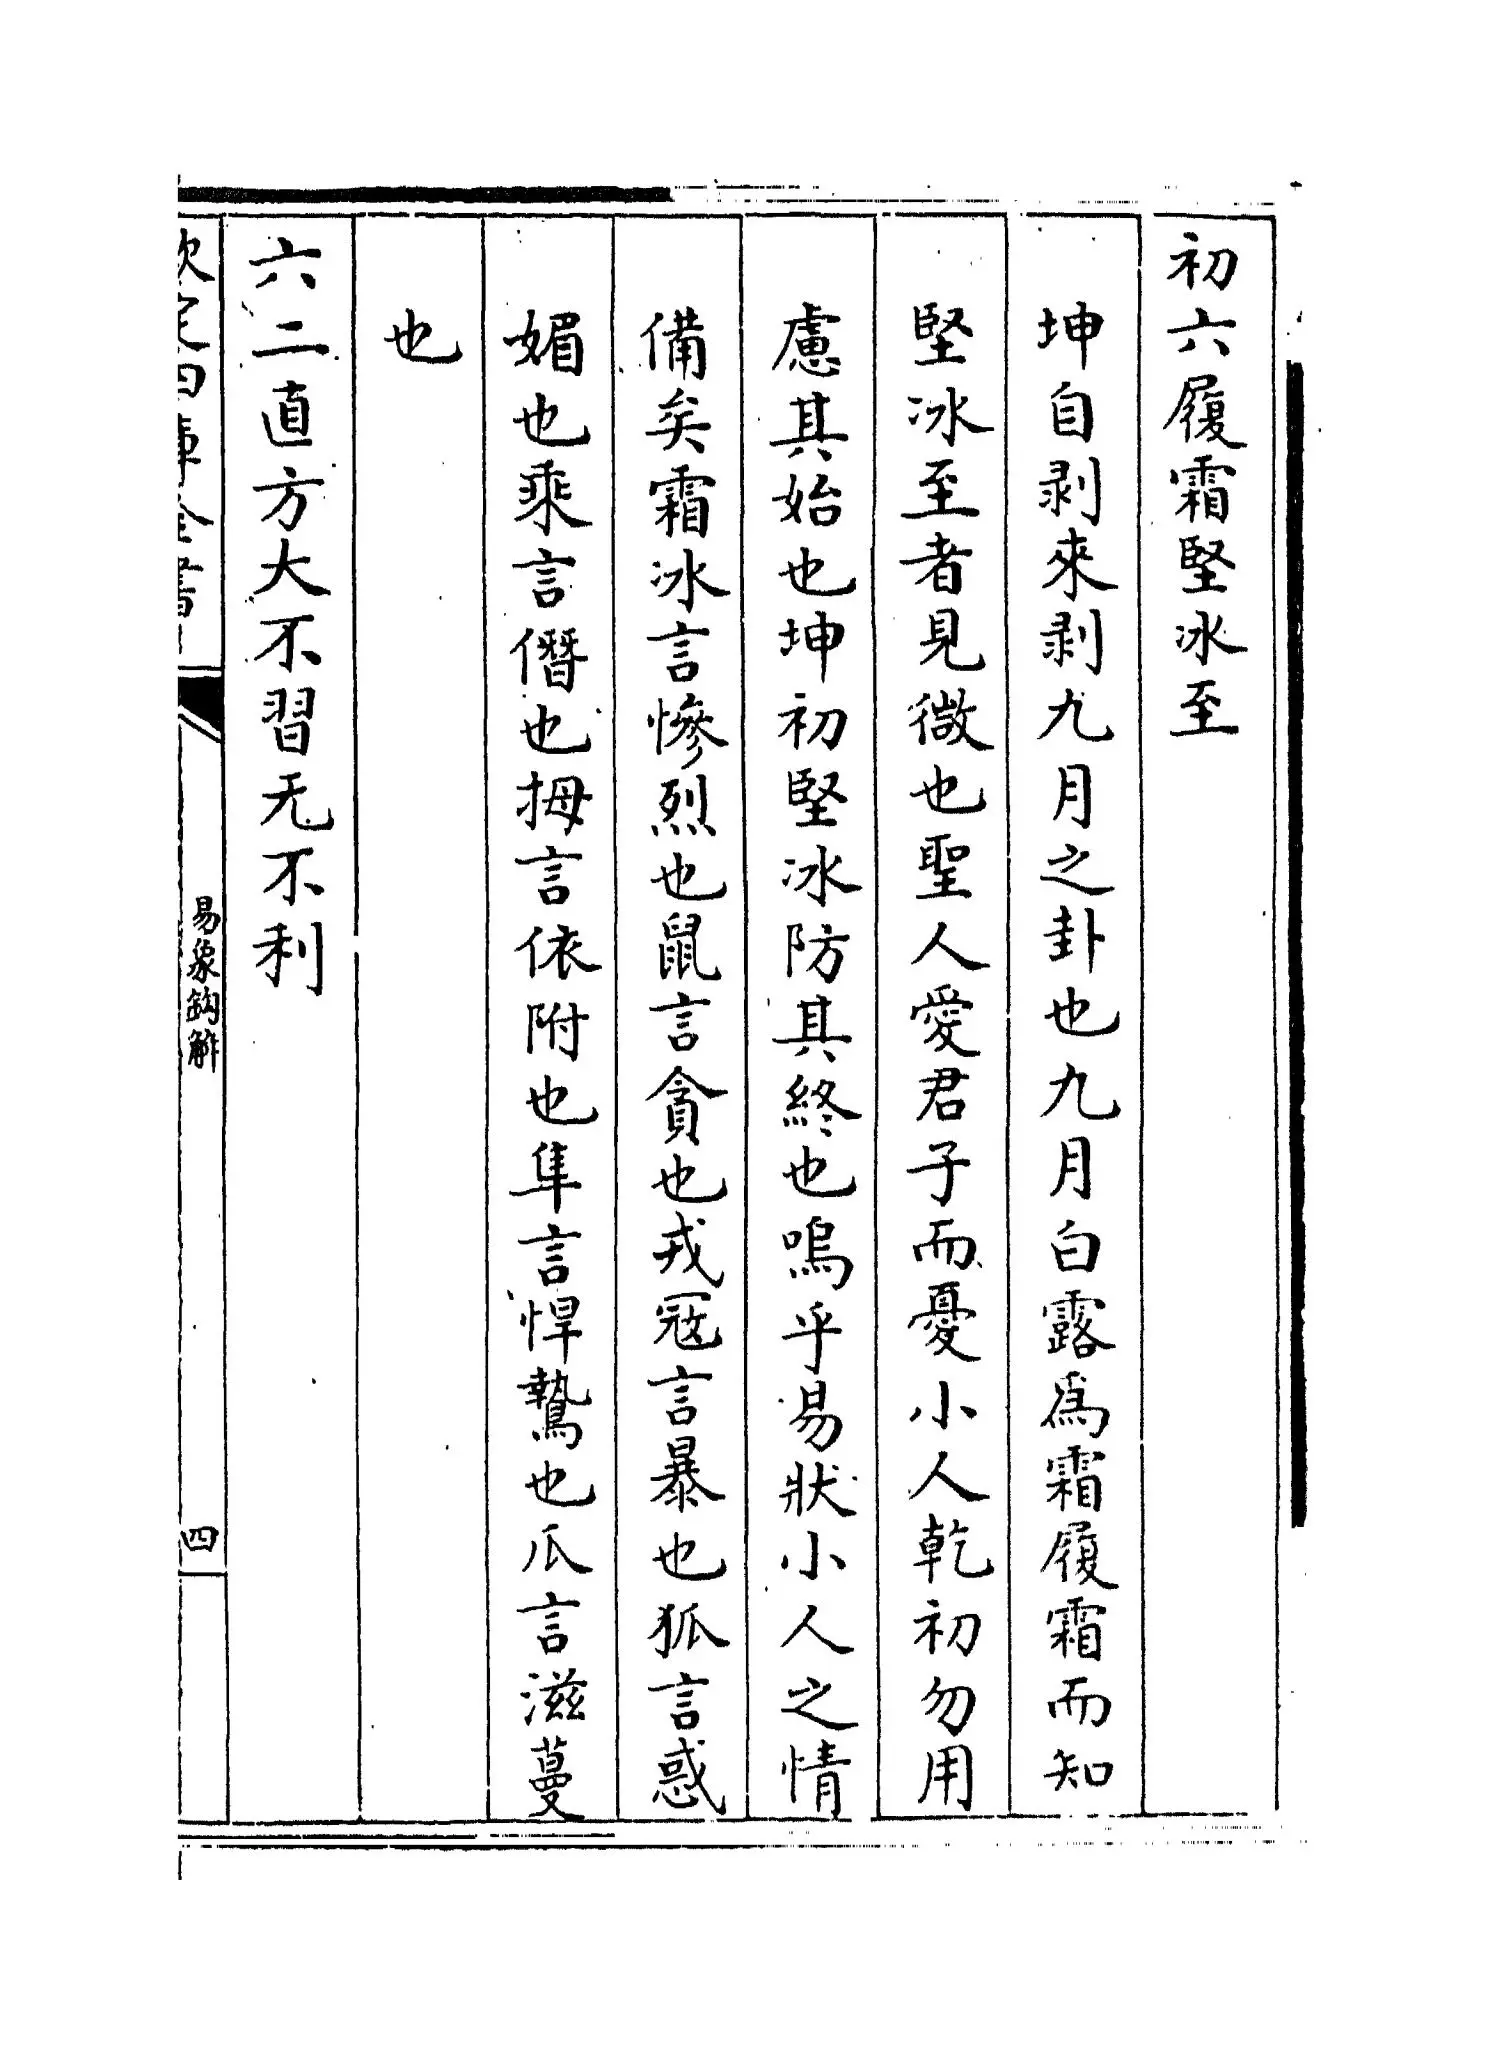 初六履霜堅冰至
坤自剥來剥九月之卦也九月白露爲霜履霜而知
堅冰至者見微也聖人愛君子而憂小人乾初勿用
慮其始也坤初堅冰防其終也嗚乎易狀小人之情
備矣霜冰言慘烈也鼠言貪也戎冦言暴也狐言惑
媚也乘言僭也拇言依附也隼言悍鷙也瓜言滋蔓
也
六二直方大不習无不利
欽定四庫全書
易象鈎解
四